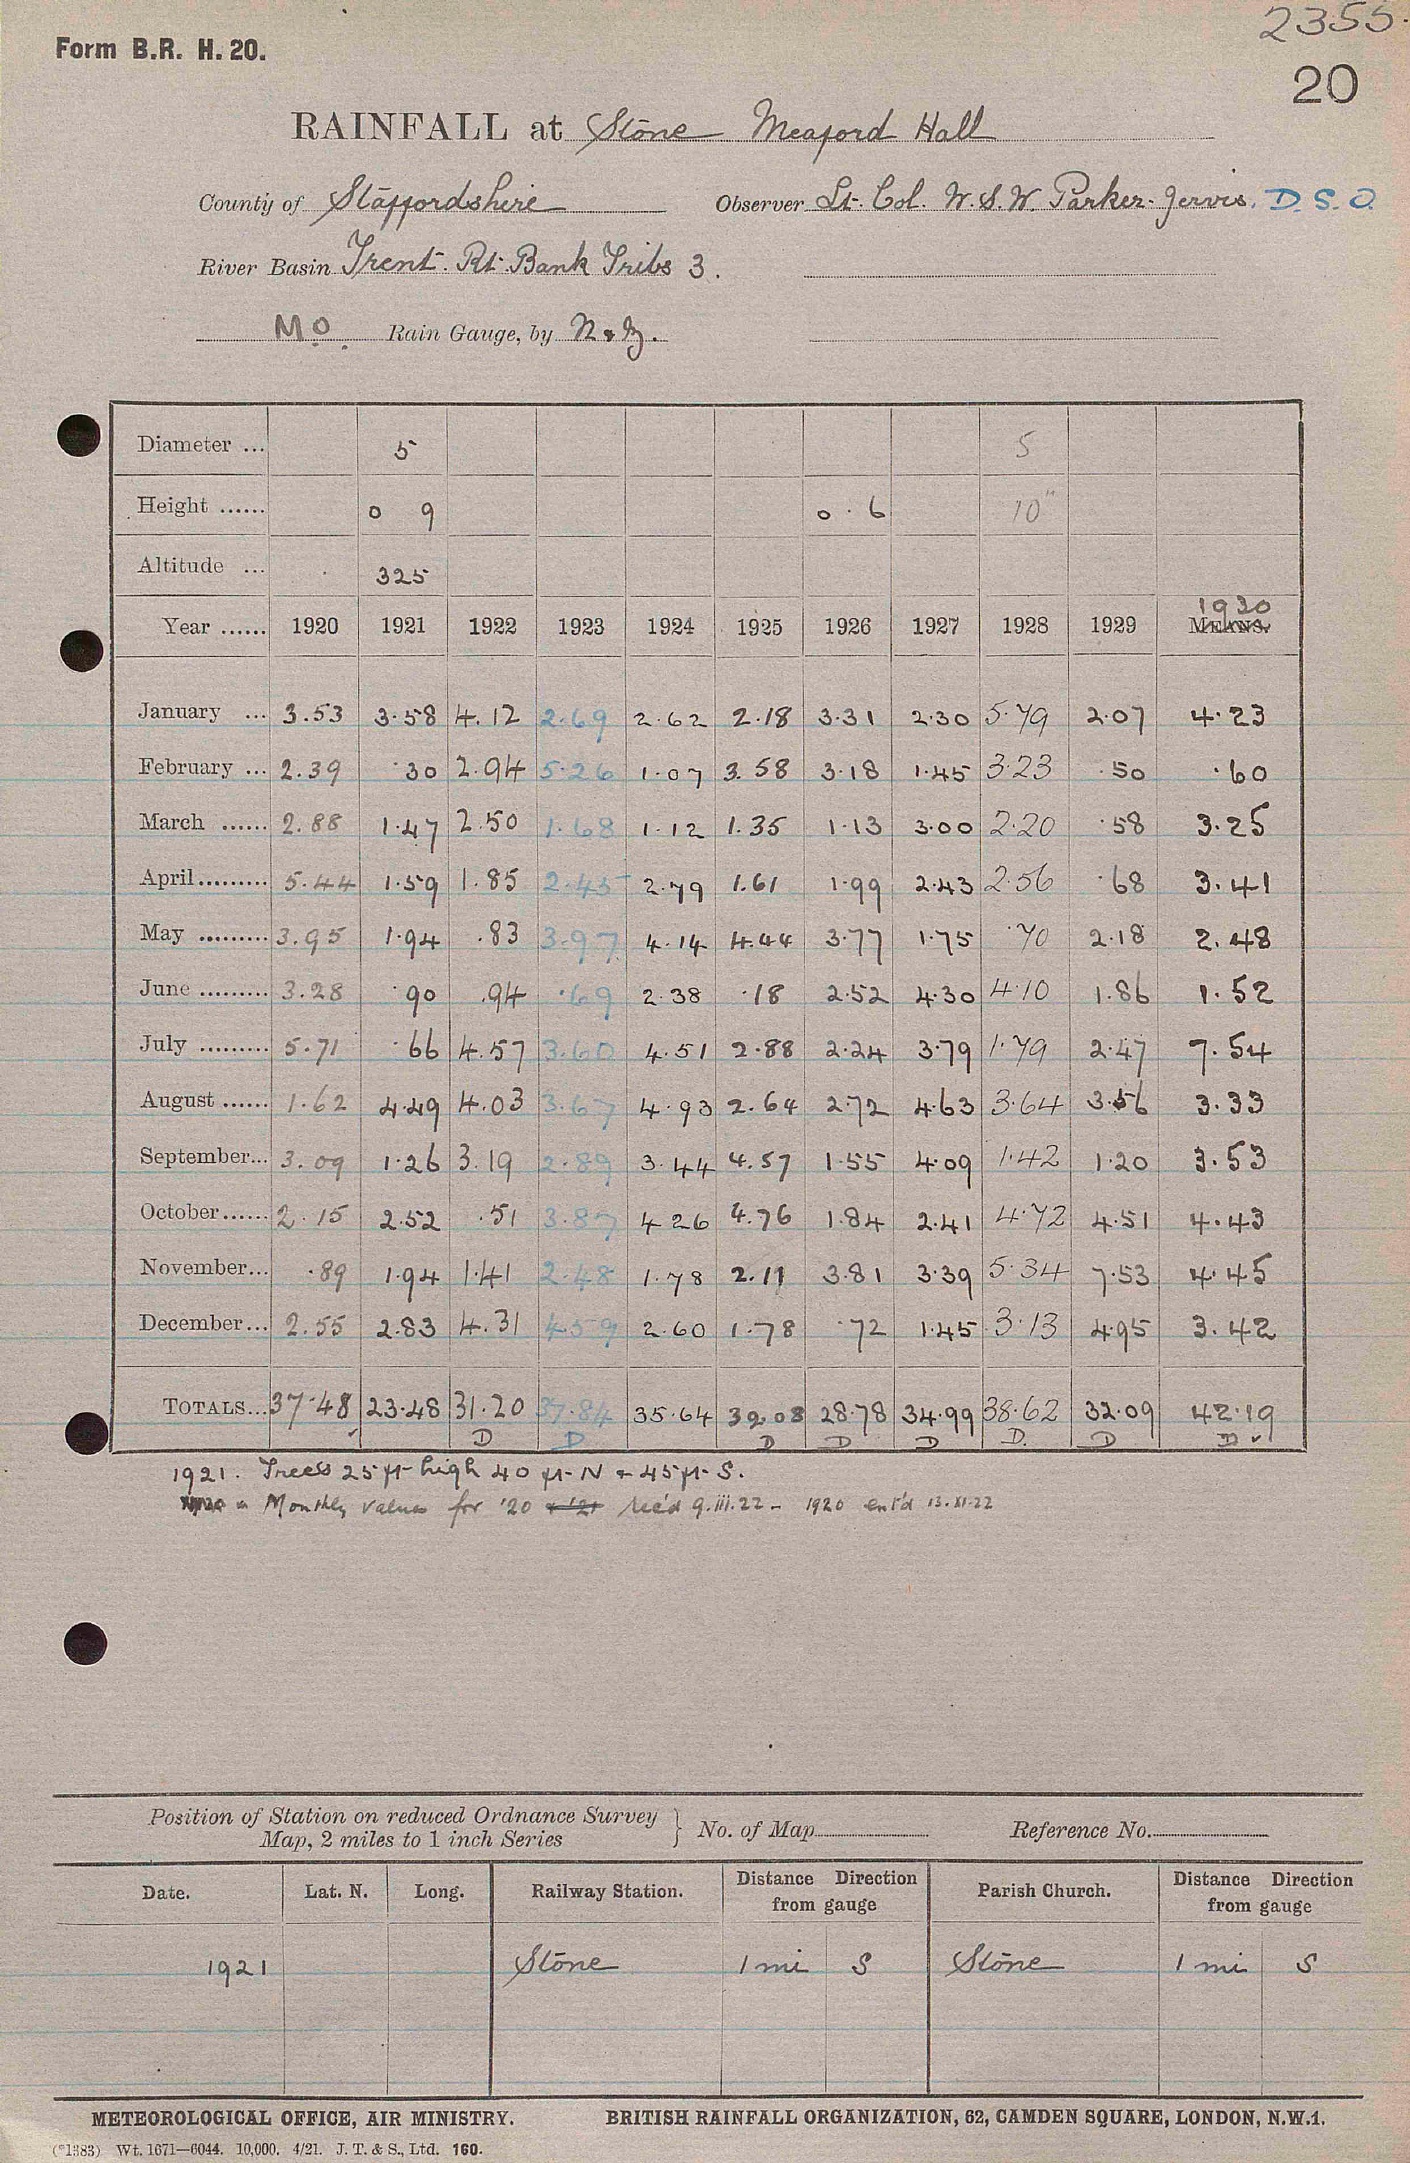 2355.
Form B.R. H. 20.
20
RAINFALL at Stone Meaford Hall
County of Staffordshire Observer Lt. Col. W. S. W. Parker-Jervis. D. S. O.
River Basin Trent. Rt. Bank Tribs 3.
Mo. Rain Gauge, by N & Z.
Diameter ... 5 5
Height ...... 0 9 0 . 6 10"
Altitude ... 325
1930
Year ...... 1920 1921 1922 1923 1924 1925 1926 1927 1928 1929 MEANS.
January ... 3.53 3.58 4.12 2.69 2.62 2.18 3.31 2.30 5.79 2.07 4.23
February ... 2.39 .30 2.94 5.26 1.07 3.58 3.18 1.45 3.23 .50 .60
March ...... 2.88 1.47 2.50 1.68 1.12 1.35 1.13 3.00 2.20 .58 3.25
April......... 5.44 1.59 1.85 2.45 2.79 1.61 1.99 2.43 2.56 .68 3.41
May ......... 3.95 1.94 .83 3.97 4.14 4.44 3.77 1.75 .70 2.18 2.48
June ......... 3.28 .90 .94 .69 2.38 .18 2.52 4.30 4.10 1.86 1.52
July ......... 5.71 .66 4.57 3.60 4.51 2.88 2.24 3.79 1.79 2.47 7.54
August ...... 1.62 4.49 4.03 3.67 4.93 2.64 2.72 4.63 3.64 3.56 3.33
September... 3.09 1.26 3.19 2.89 3.44 4.57 1.55 4.09 1.42 1.20 3.53
October...... 2.15 2.52 .51 3.87 4.26 4.76 1.84 2.41 4.72 4.51 4.43
November... .89 1.94 1.41 2.48 1.78 2.11 3.81 3.39 5.34 7.53 4.45
December... 2.55 2.83 4.31 4.59 2.60 1.78 .72 1.45 3.13 4.95 3.42
TOTALS... 37.48 23.48 31.20 37.84 35.64 32.08 28.78 34.99 38.62 32.09 42.19
✓ D D D D D D. D D ✓
1921. Trees 25 ft high 40 ft N + 45 ft S.
Monthly values for '20 & '21 rec'd 9.iii.22 - 1920 ent'd 13.XI.22
Position of Station on reduced Ordnance Survey
Map, 2 miles to 1 inch Series } No. of Map Reference No.
Date. Lat. N. Long. Railway Station. Distance Direction from gauge Parish Church. Distance Direction from gauge
1921 Stone 1 mi S Stone 1 mi S
METEOROLOGICAL OFFICE, AIR MINISTRY. BRITISH RAINFALL ORGANIZATION, 62, CAMDEN SQUARE, LONDON, N.W.1.
(*1383) Wt. 1671—6044. 10,000. 4/21. J. T. & S., Ltd. 160.